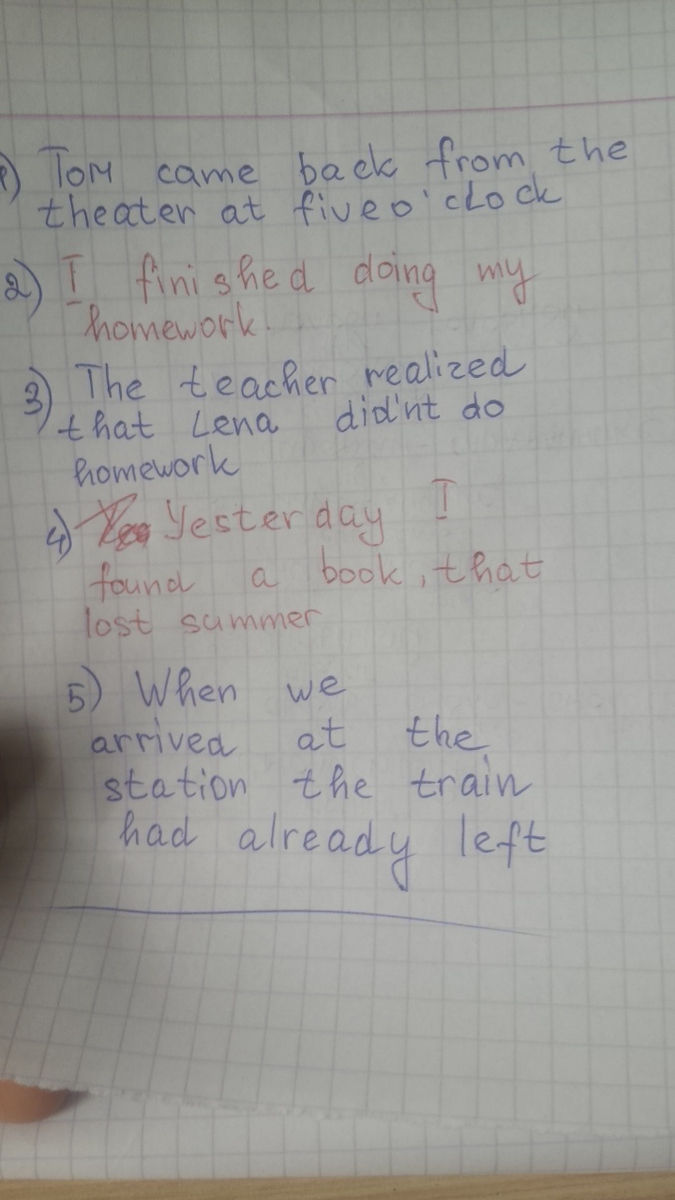 1) Tom came back from the
theater at five o'clock
2) I finished doing my
homework.
3) The teacher realized
that Lena did'nt do
homework
4) Yesterday I
found a book, that
lost summer
5) When we
arrived at the
station the train
had already left